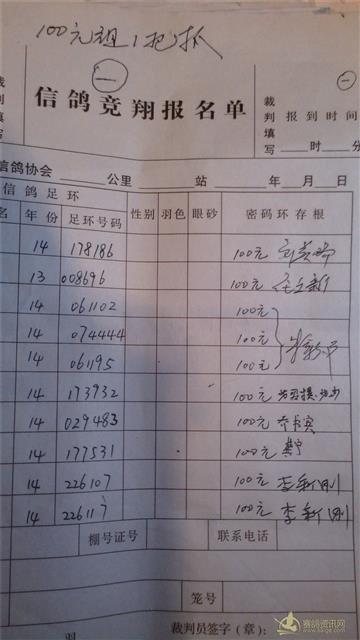 100元组1把抓
㊀
㊀
信鸽竞翔报名单
裁判填写
裁判填写
报到时间
时 分
信鸽协会 公里 站 年 月 日
信鸽足环
名 年份 足环号码 性别 羽色 眼砂 密码环存根
14 178186 100元
13 008696 100元
14 061102 100元
14 074444 100元
14 061195 100元
14 173732 100元
14 029483 100元
14 177531 100元
14 226107 100元 李新刚
14 226117 100元 李新刚
棚号证号 联系电话
笼号
羽 裁判员签字（章）：
赛鸽资讯网